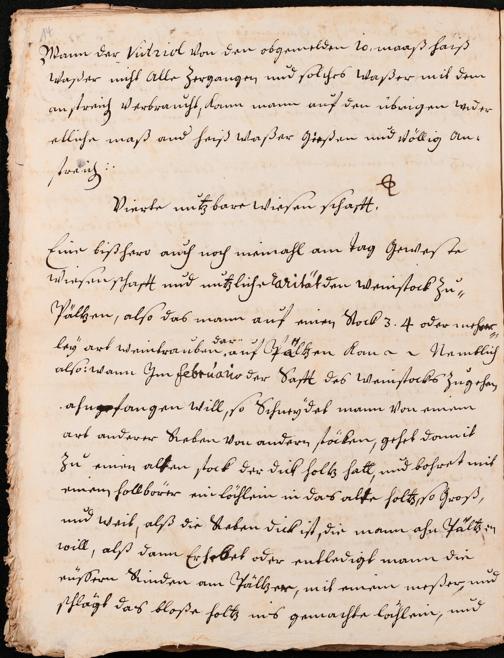 14
Wann der Vitriol von den obgemelden 10. maaß haiß
waßer nicht alle zergangen und solches waßer mit dem
anstreich verbraucht, kann mann auf den übrigen wider
etliche maß and heiß waßer gießen und völlig an=
streich:
Vierte nutzbare wiesenschafft.
Eine bißhero auch noch niemahl am tag geweste
wiesenschafft und nützliche Rarität den weinstock zu
Pältzen, also das mann auf einen Stock 3. 4 oder mehrer
ley art weintrauben, auf Pältzen kan ~ ~ Nemblich
also: wann Im februario der Safft des weinstocks zugehen
anfangen will, so Schneydet mann von einem
art anderer Reben von andern stöcken, gehet damit
zu einen alten stock der dick holtz hatt, und bohret mit
einem hollborer ein löchlein in das alte holtz, so groß,
und weit, alß die Reben dick ist, die mann ahn Pältzen
will, alß dann Erhebet oder entledigt mann die
eüssern Rinden am Pältzer, mit einem meßer, und
schlägt das bloße holtz ins gemachte löchlein, und